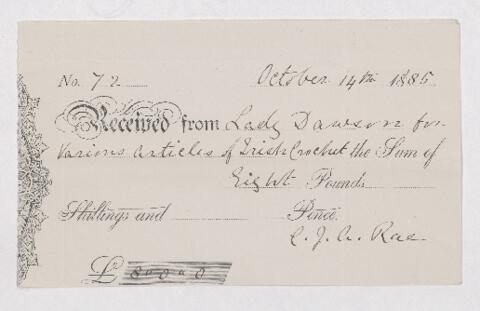 No. 72 October 14th 1885
Received from Lady Dawson for
Various articles of Irish Crochet the Sum of
Eight Pounds
Shillings and Pence.
C. J. A. Rae
£ 8 " 0 " 0